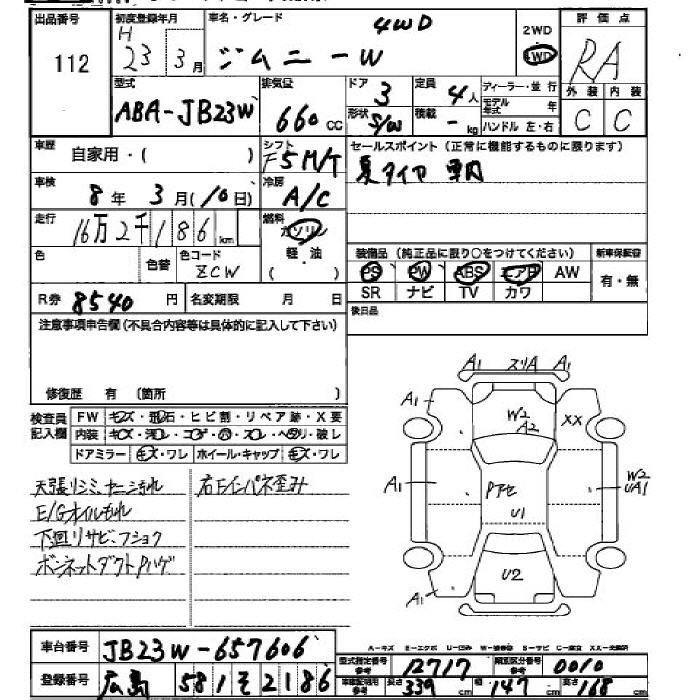 出品番号 初度登録年月 車名・グレード 4WD 2WD 評価点
112 H 23 3月 ジムニーW 4WD RA
型式 排気量 ドア 定員 ディーラー・並行 外装 内装
ABA-JB23W 660cc 3 4人 モデル年式 年 C C
形状 S/W 積載 -kg ハンドル 左・右
車歴 自家用・( ) シフト F5 M/T セールスポイント (正常に機能するものに限ります)
車検 8年 3月(10日) 冷房 A/C 夏タイヤ 車内
走行 16万2千186km 燃料 ガソリン
軽・油
( )
色 色替 色コード ZCW
装備品 (純正品に限り○をつけてください) 新車保証書
PS PW ABS エアB AW 有・無
SR ナビ TV カワ
R券 8540円 名変期限 月 日 後日品
注意事項申告欄(不具合内容等は具体的に記入して下さい)
修復歴 有 (箇所 )
検査員記入欄 FW キズ・飛石・ヒビ割・リペア跡・X要
内装 キズ・汚レ・コゲ・穴・スレ・ヘタリ・破レ
ドアミラー キズ・ワレ ホイール・キャップ キズ・ワレ
天張リシミ、ヤニ汚れ 右Fインパネ歪み
E/Gオイルもれ
下回リサビ、フショク
ボンネットダクトPハゲ
A1 スリA A1
A1 W2 A2 XX
A1 Pアセ U1 W2 UA1
A1 U2
A-キズ E-エクボ U-凹み W-補修跡 S-サビ C-腐食 XX-交換済
車台番号 JB23W-657606
登録番号 広島 581 そ 2186
型式指定番号 参考 12717 類別区分番号 参考 0010
車検証記載用 参考 長さ 339cm 幅 147cm 高さ 168cm